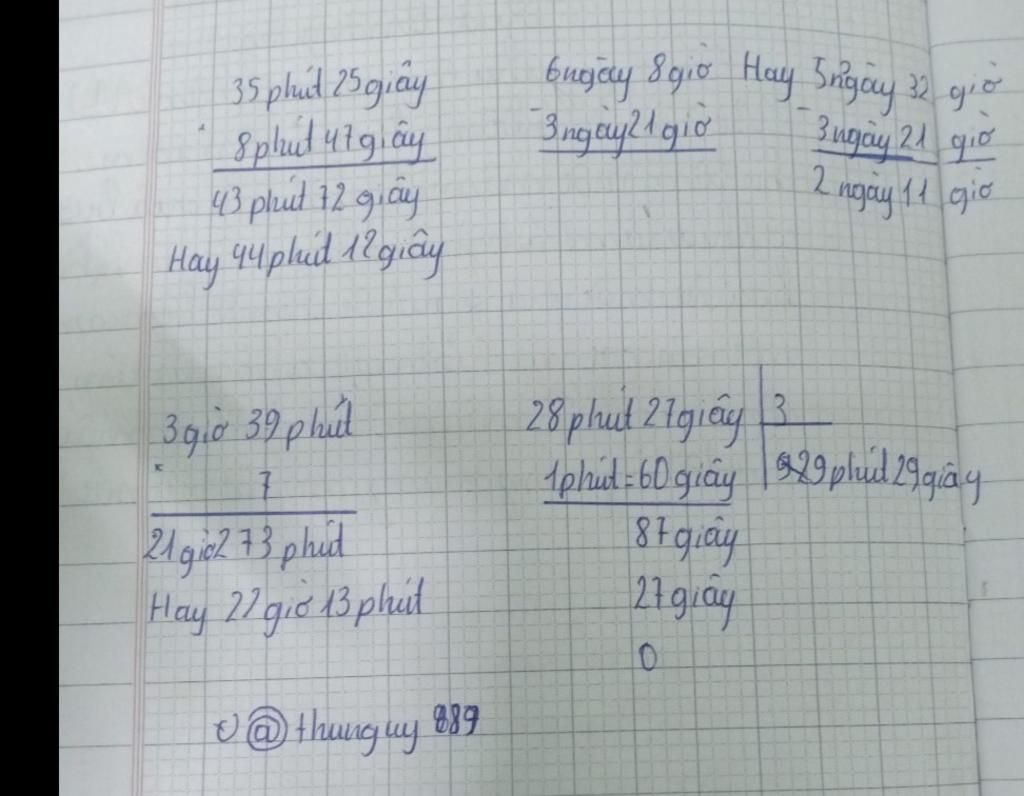 35 phút 25 giây
8 phút 47 giây
43 phút 72 giây
Hay 44 phút 12 giây
6 ngày 8 giờ Hay 5 ngày 32 giờ
- 3 ngày 21 giờ - 3 ngày 21 giờ
2 ngày 11 giờ
3 giờ 39 phút
x
7
21 giờ 273 phút
Hay 22 giờ 13 phút
28 phút 27 giây 3
1 phút = 60 giây 29 phút 29 giây
87 giây
27 giây
0
@ thunguy 889